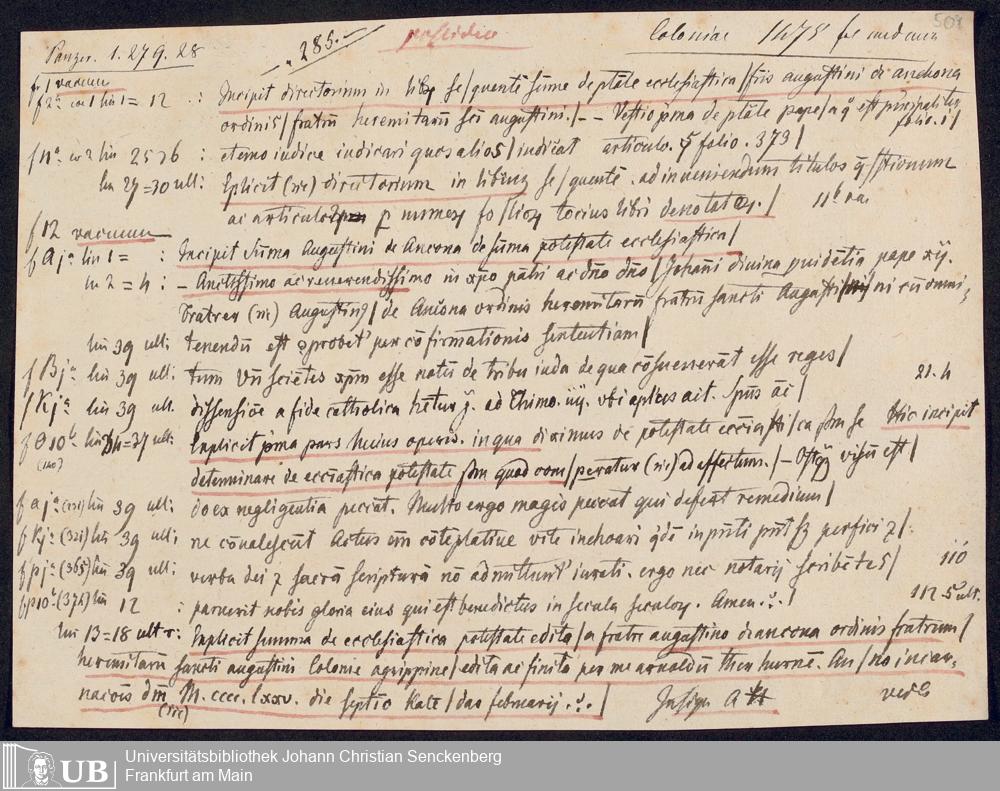 Panzer. 1. 279. 28 285.– Coloniae 1475 508
f 1 vacuum
f 2a col 1 lin 1 = 12 : Incipit directorium in librum se/quentem summe de ptate ecclesiastica/fris augustini de anchona
ordinis/fratrum heremitarum sci augustini./ – – Vestio pma de ptate pape/a q est principaliter
folio. i/
f 11a co 2 lin 25 26 : eterno iudice iudicari quos alios/iudicat articulo. 5 folio. 373/
lin 27 = 30 ult: Explicit (sic) directorium in librum se/quente. ad inveniendum titulos q/stionum
ac articulo ꝑ numerum fo/lioꝝ tocius libri denotatoꝝ./ 11b va
f 12 vacuum
f A ja lin 1 = : Incipit summa Augustini de Ancona de summa potestate ecclesiastica/
lin 2 = 4 : – Anctissimo ac reverendissimo in xpo patri ac dno dno/Johanni divina puidetia pape xij.
Fratrer (sic) Augustinus/de Ancona ordinis heremitarum fratrum sancti Augusti/ni cum omni
lin 39 ult: tenendum est comprobet' per confirmationis sententiam/
f B ja lin 39 ult: tum Un scietes xpm esse natu de tribu iuda de qua cosueverat esse reges/
f K ja lin 39 ult. dissensioe a fide catholica hetur j. ad Thimo. iiij. ubi aplus ait. Spus aci/ 21. h
f O 10b lin 34=37 ult: Explicit pma pars huius operis. in qua diximus de potestate ecciasti/ca sm se Hic incipit
(110) determinare de ecciastica potestate sm quod com/peratur (sic) ad effectum./ – Ostq visum est/
f a ja (131) lin 39 ult: do ex negligentia peccat. Multo ergo magis peccat qui deserit remedium/
f K ja (321) lin 39 ult: ne convalescunt Actus eni coteplative vite inchoari qde in pnti pnt sz perfici z/.
f p ja (365) lin 39 ult: verba dei z sacra scriptura no admittunt' iurati. ergo nec notarij scribetes/ 110
f p 10b (374) lin 12 : paruerit nobis gloria eius qui est benedictus in secula seculoꝝ. Amen/ 112 5 ult.
lin 13=18 ult r: Explicit summa de ecclesiastica potestate edita/a fratre augustino de ancona ordinis fratrum/
heremitarum sancti augustini Colonie agrippine/edita ac finita per me arnoldu ther hurne. An/no incar-
nacois dm M. cccc. lxxv. die septio kale/das februarij/ Insign. A
(sic)
Universitätsbibliothek Johann Christian Senckenberg
Frankfurt am Main
UB